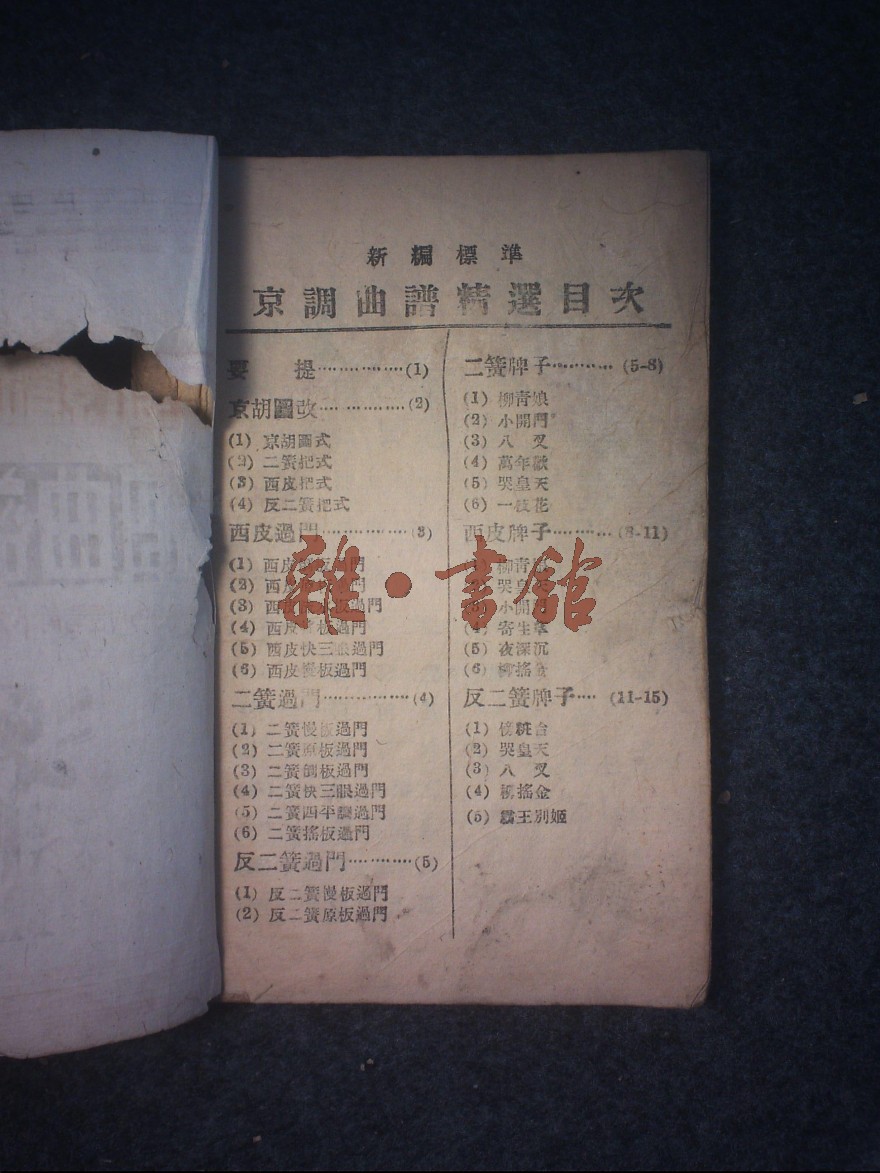 新編標準
京調曲譜精選目次
要　提……………(1)
京胡圖改……………(2)
(1) 京胡圖式
(2) 二簧把式
(3) 西皮把式
(4) 反二簧把式
西皮過門……………(3)
(1) 西皮 過門
(2) 西皮 過門
(3) 西皮 板過門
(4) 西皮 板過門
(5) 西皮快三眼過門
(6) 西皮 板過門
二簧過門……………(4)
(1) 二簧慢板過門
(2) 二簧原板過門
(3) 二簧倒板過門
(4) 二簧快三眼過門
(5) 二簧四平調過門
(6) 二簧搖板過門
反二簧過門…………(5)
(1) 反二簧慢板過門
(2) 反二簧原板過門
二簧牌子…………(5-8)
(1) 柳青娘
(2) 小開門
(3) 八　叉
(4) 萬年歡
(5) 哭皇天
(6) 一枝花
西皮牌子………(8-11)
柳青
哭皇
小開門
(4) 寄生草
(5) 夜深沉
(6) 柳搖金
反二簧牌子…(11-15)
(1) 傍粧台
(2) 哭皇天
(3) 八　叉
(4) 柳搖金
(5) 霸王別姬
雜·書館